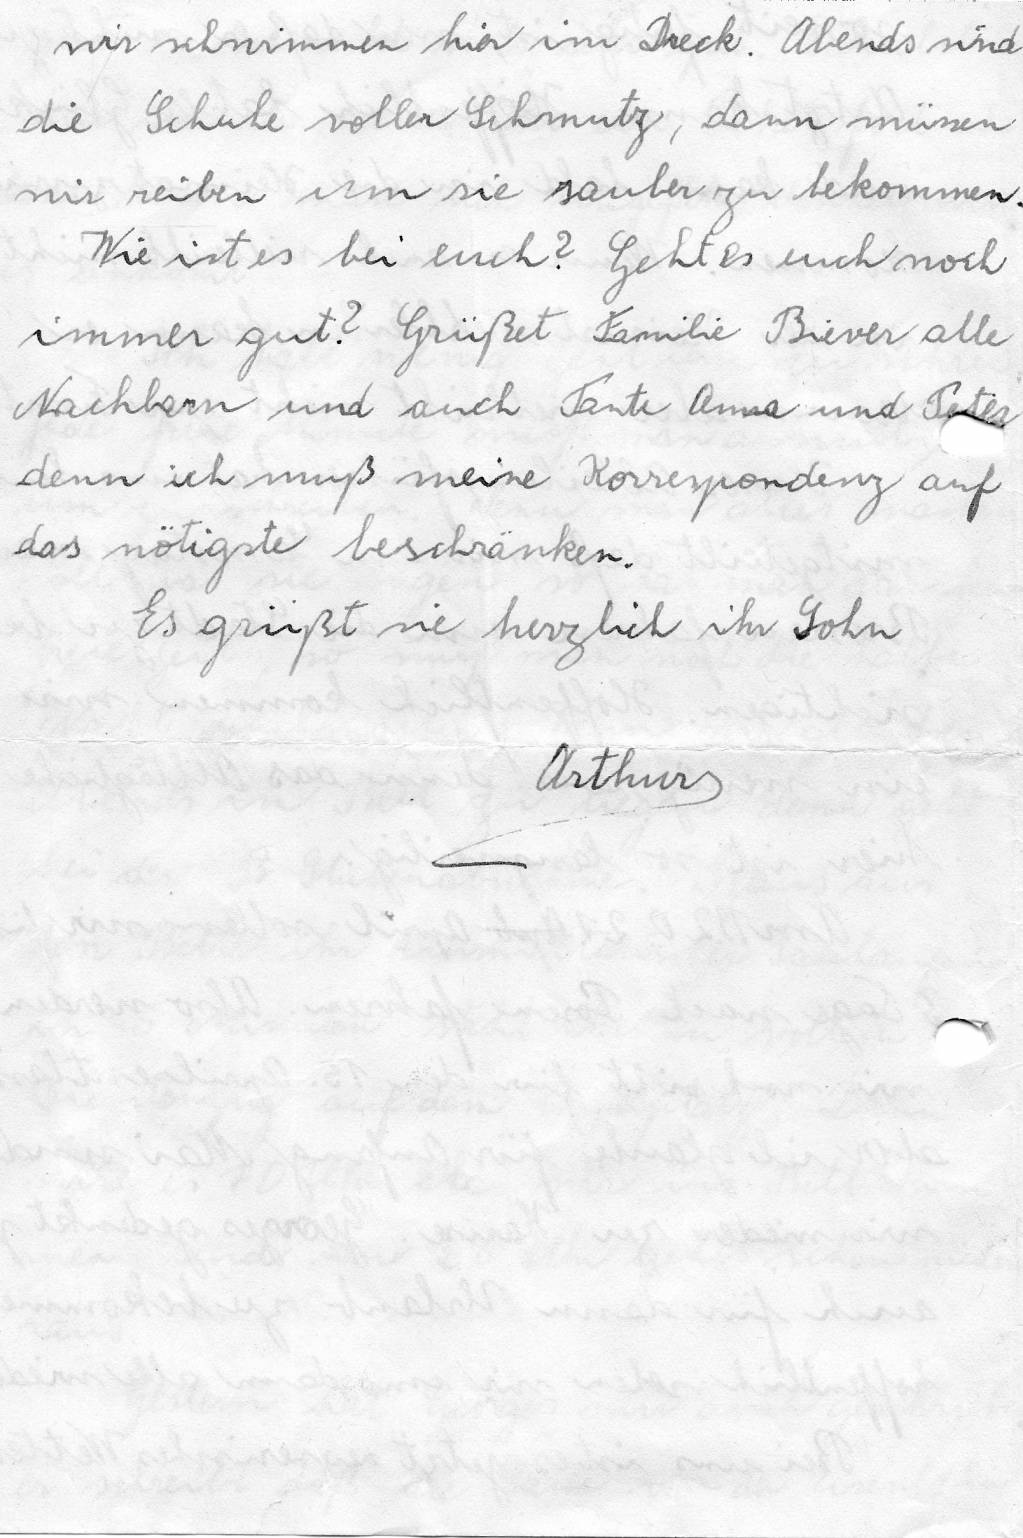 wir schwimmen hier im Dreck. Abends sind
die Schuhe voller Schmutz, dann müssen
wir reiben um sie sauber zu bekommen.
Wie ist es bei euch? Geht es euch noch
immer gut? Grüßet Familie Biever alle
Nachbarn und auch Tante Anna und Peter
denn ich muß meine Korrespondenz auf
das nötigste beschränken.
Es grüßt sie herzlich ihr Sohn
Arthur